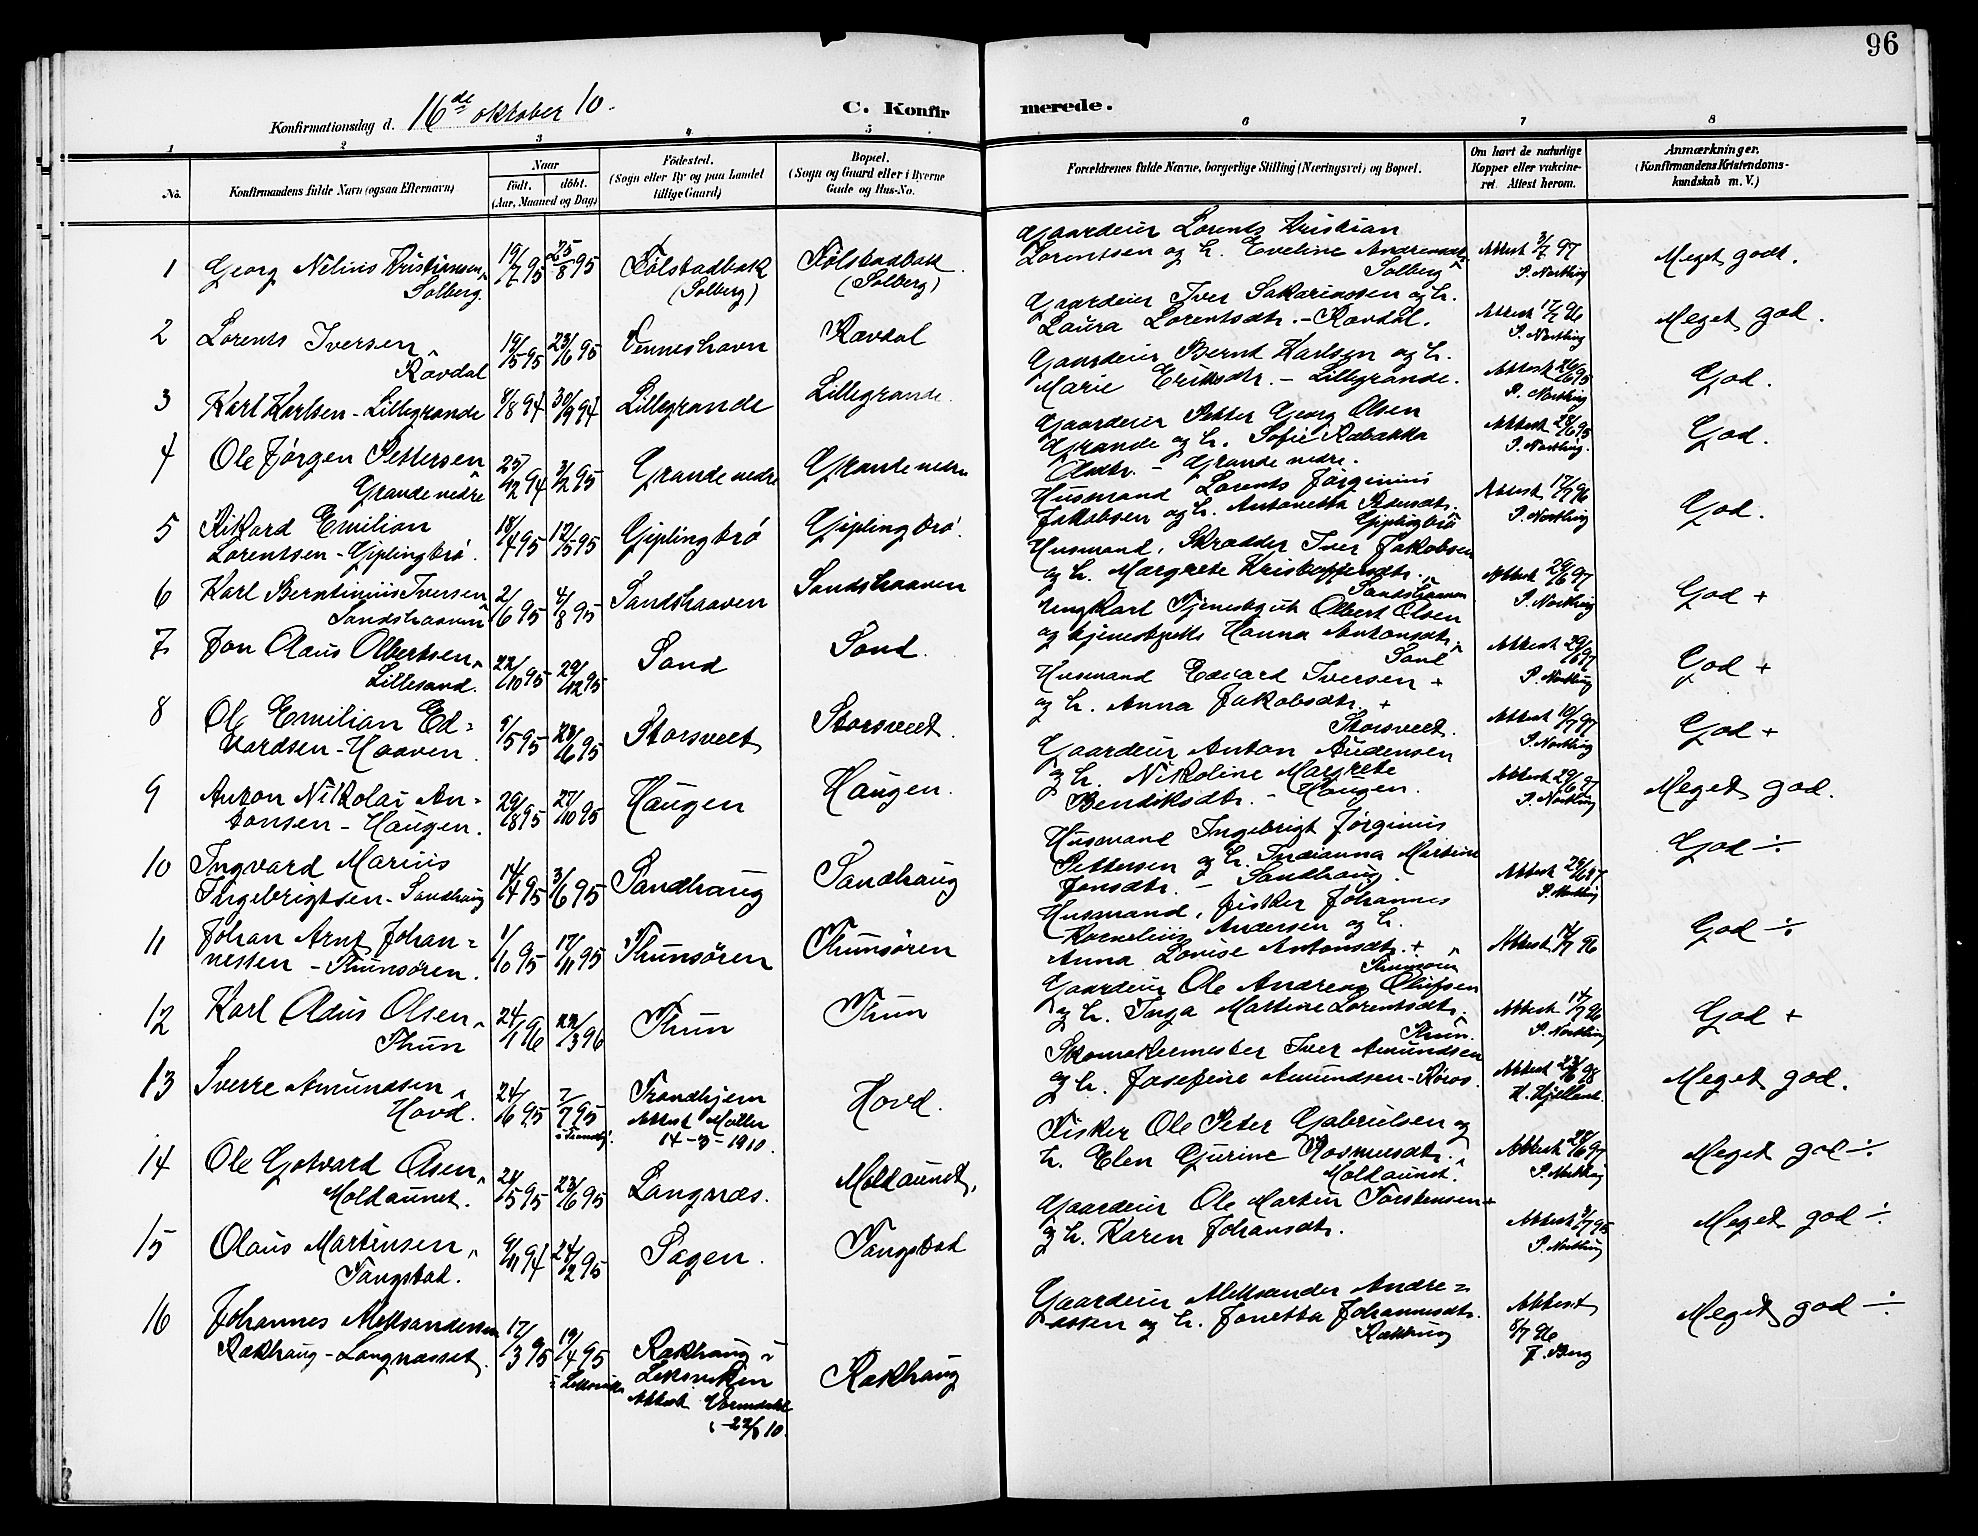 96
Konfirmationsdag d. 16de oktober 10.
C. Konfirmerede.
1 2 3 4 5 6 7 8
No.
Konfirmandens fulde Navn (ogsaa Efternavn)
Naar
født. døbt.
(Aar, Maaned og Dag)
Fødested.
(Sogn eller By og paa Landet
tillige Gaard)
Bopæl.
(Sogn og Gaard eller i Byerne
Gade og Hus-No.
Forældrenes fulde Navne, borgerlige Stilling (Næringsvei) og Bopæl.
Om havt de naturlige
Kopper eller vakcine-
ret. Attest herom.
Anmærkninger.
(Konfirmandens Kristendoms-
kundskab m. V.)
1 Georg Nilius Kristiansen
Solberg.
19/7 95 25/8 95
Følstadbak
(Solberg)
Følstadbak
(Solberg)
Gaardeier Lorents Kristian
Lorentsen og h. Eveline Andreasdtr
Solberg
Attest 3/7 97
P. Northug
Meget godt.
2 Lorents Iversen
Ravdal
19/5 95 23/6 95
Venneshavn
Ravdal
Gaardeier Iver Sakariassen og h.
Laura Lorentsdtr. - Ravdal.
Attest 17/7 96
P. Northug
Meget god.
3 Karl Karlsen - Lillegrande
8/8 94 30/9 94
Lillegrande
Lillegrande.
Gaardeier Bernt Karlsen og h.
Marie Eriksdtr. - Lillegrande.
Attest 26/6 95
P. Northug
God.
4 Ole Jørgen Pettersen
Grande nedre
25/12 94 3/2 95
Grande nedre
Grande nedre
Gaardeier Petter Georg Olsen
Grande og h. Sofie Rebakka
Olsdtr. - Grande nedre.
Attest 28/6 95
P. Northug.
God.
5 Rikard Emilian
Lorentsen - Giplingbrø.
18/4 95 12/5 95
Giplingbrø
Giplingbrø.
Husmand Lorents Jørginius
Jakobsen og h. Antonetta Pedersdtr.
Giplingbrø
Attest 17/7 96
P. Northug
God.
6 Karl Berntinius Iversen
Sandshaaven
2/6 95 4/8 95
Sandshaaven
Sandshaaven
Husmand, Skrædder Iver Jakobsen
og h. Margrete Kristoffersdtr.
Sandshaaven
Attest 29/6 97
P. Northug
God +
7 Jon Olaus Olbertsen
Lillesand.
22/10 95 29/12 95
Sand
Sand.
Ungkarl Tjenestgut Olbert Olsen
og tjenestpike Hanna Antonsdtr.
Sand
Attest 29/6 97
P. Northug
God +
8 Ole Emilian Ed=
vardsen - Haaven.
9/5 95 23/6 95
Storsveet
Storsveet.
Husmand Edvard Iversen +
og h. Anna Jakobsdtr. +
Storsveet.
Attest 10/7 97
P. Northug
God +
9 Anton Nikolai An=
tonsen - Haugen.
29/8 95 27/10 95
Haugen
Haugen.
Gaardeier Anton Audensen
og h. Nikoline Margrete
Bendiksdtr. - Haugen.
Attest 29/6 97
P. Northug
Meget god.
10 Ingvard Marius
Ingebrigtsen - Sandhaug
14/4 95 3/6 95
Sandhaug
Sandhaug
Husmand Ingebrigt Jørginius
Pettersen og h. Indianna Martine
Jonsdtr. - Sandhaug.
Attest
P. Northug
God ÷
11 Johan Arnt Johan=
nessen - Thunsøren.
1/10 95 17/11 95
Thunsøren
Thunsøren
Husmand, fisker Johannes
Kornelius Andersen og h.
Anna Lovise Antonsdtr. +
Thunsøren
Attest 14/7 96
God ÷
12 Karl Odus Olsen
Thun
24/1 96 22/3 96
Thun
Thun
Gaardeier Ole Andreas Olufsen
og h. Inga Martine Lorentsdtr.
Thun.
Attest 14/7 96
P. Northug
God +
13 Sverre Amundsen
Hovd.
24/6 95 7/7 95
i Trondhj.
Trondhjem
Attest Møller
14-3-1910.
Hovd.
Skomakermester Iver Amundsen
og h. Josefine Amundsen - Røros.
Attest 23/6 98
H. Hjelland.
Meget god.
14 Ole Gotvard Olsen
Moldaunet.
24/5 95 23/6 95
Langnæs.
Moldaunet.
Fisker Ole Peter Gabrielsen og
h. Elen Gurine Rasmusdtr.
Moldaunet.
Attest 28/6 97
P. Northug
Meget god ÷
15 Olaus Martinsen
Tangstad.
9/11 94 24/2 95
Sagen.
Tangstad
Gaardeier Ole Martin Torstensen +
og h. Karen Johansdtr.
Attest 3/7 95
P. Northug
Meget god ÷
16 Johannes Aleksandersen
Rakhaug - Langnæsset.
17/3 95 19/4 95
i Leksviken
Rakhaug i
Leksviken
Attest
22/ 10.
Rakhaug
Gaardeier Aleksander Andre=
assen og h. Jonetta Johannesdtr.
Rakhaug
Attest
8/7 96
J. Berg
Meget god ÷